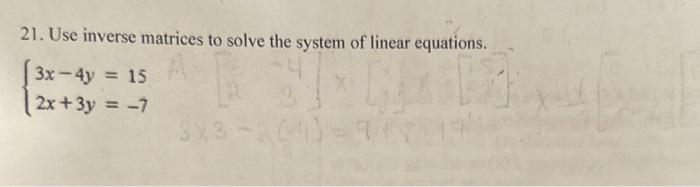 21. Use inverse matrices to solve the system of linear equations.
3x - 4y = 15
2x + 3y = -7
A [ -4
2 3 ] x
3x3 - 2(-4) = 9 + 8